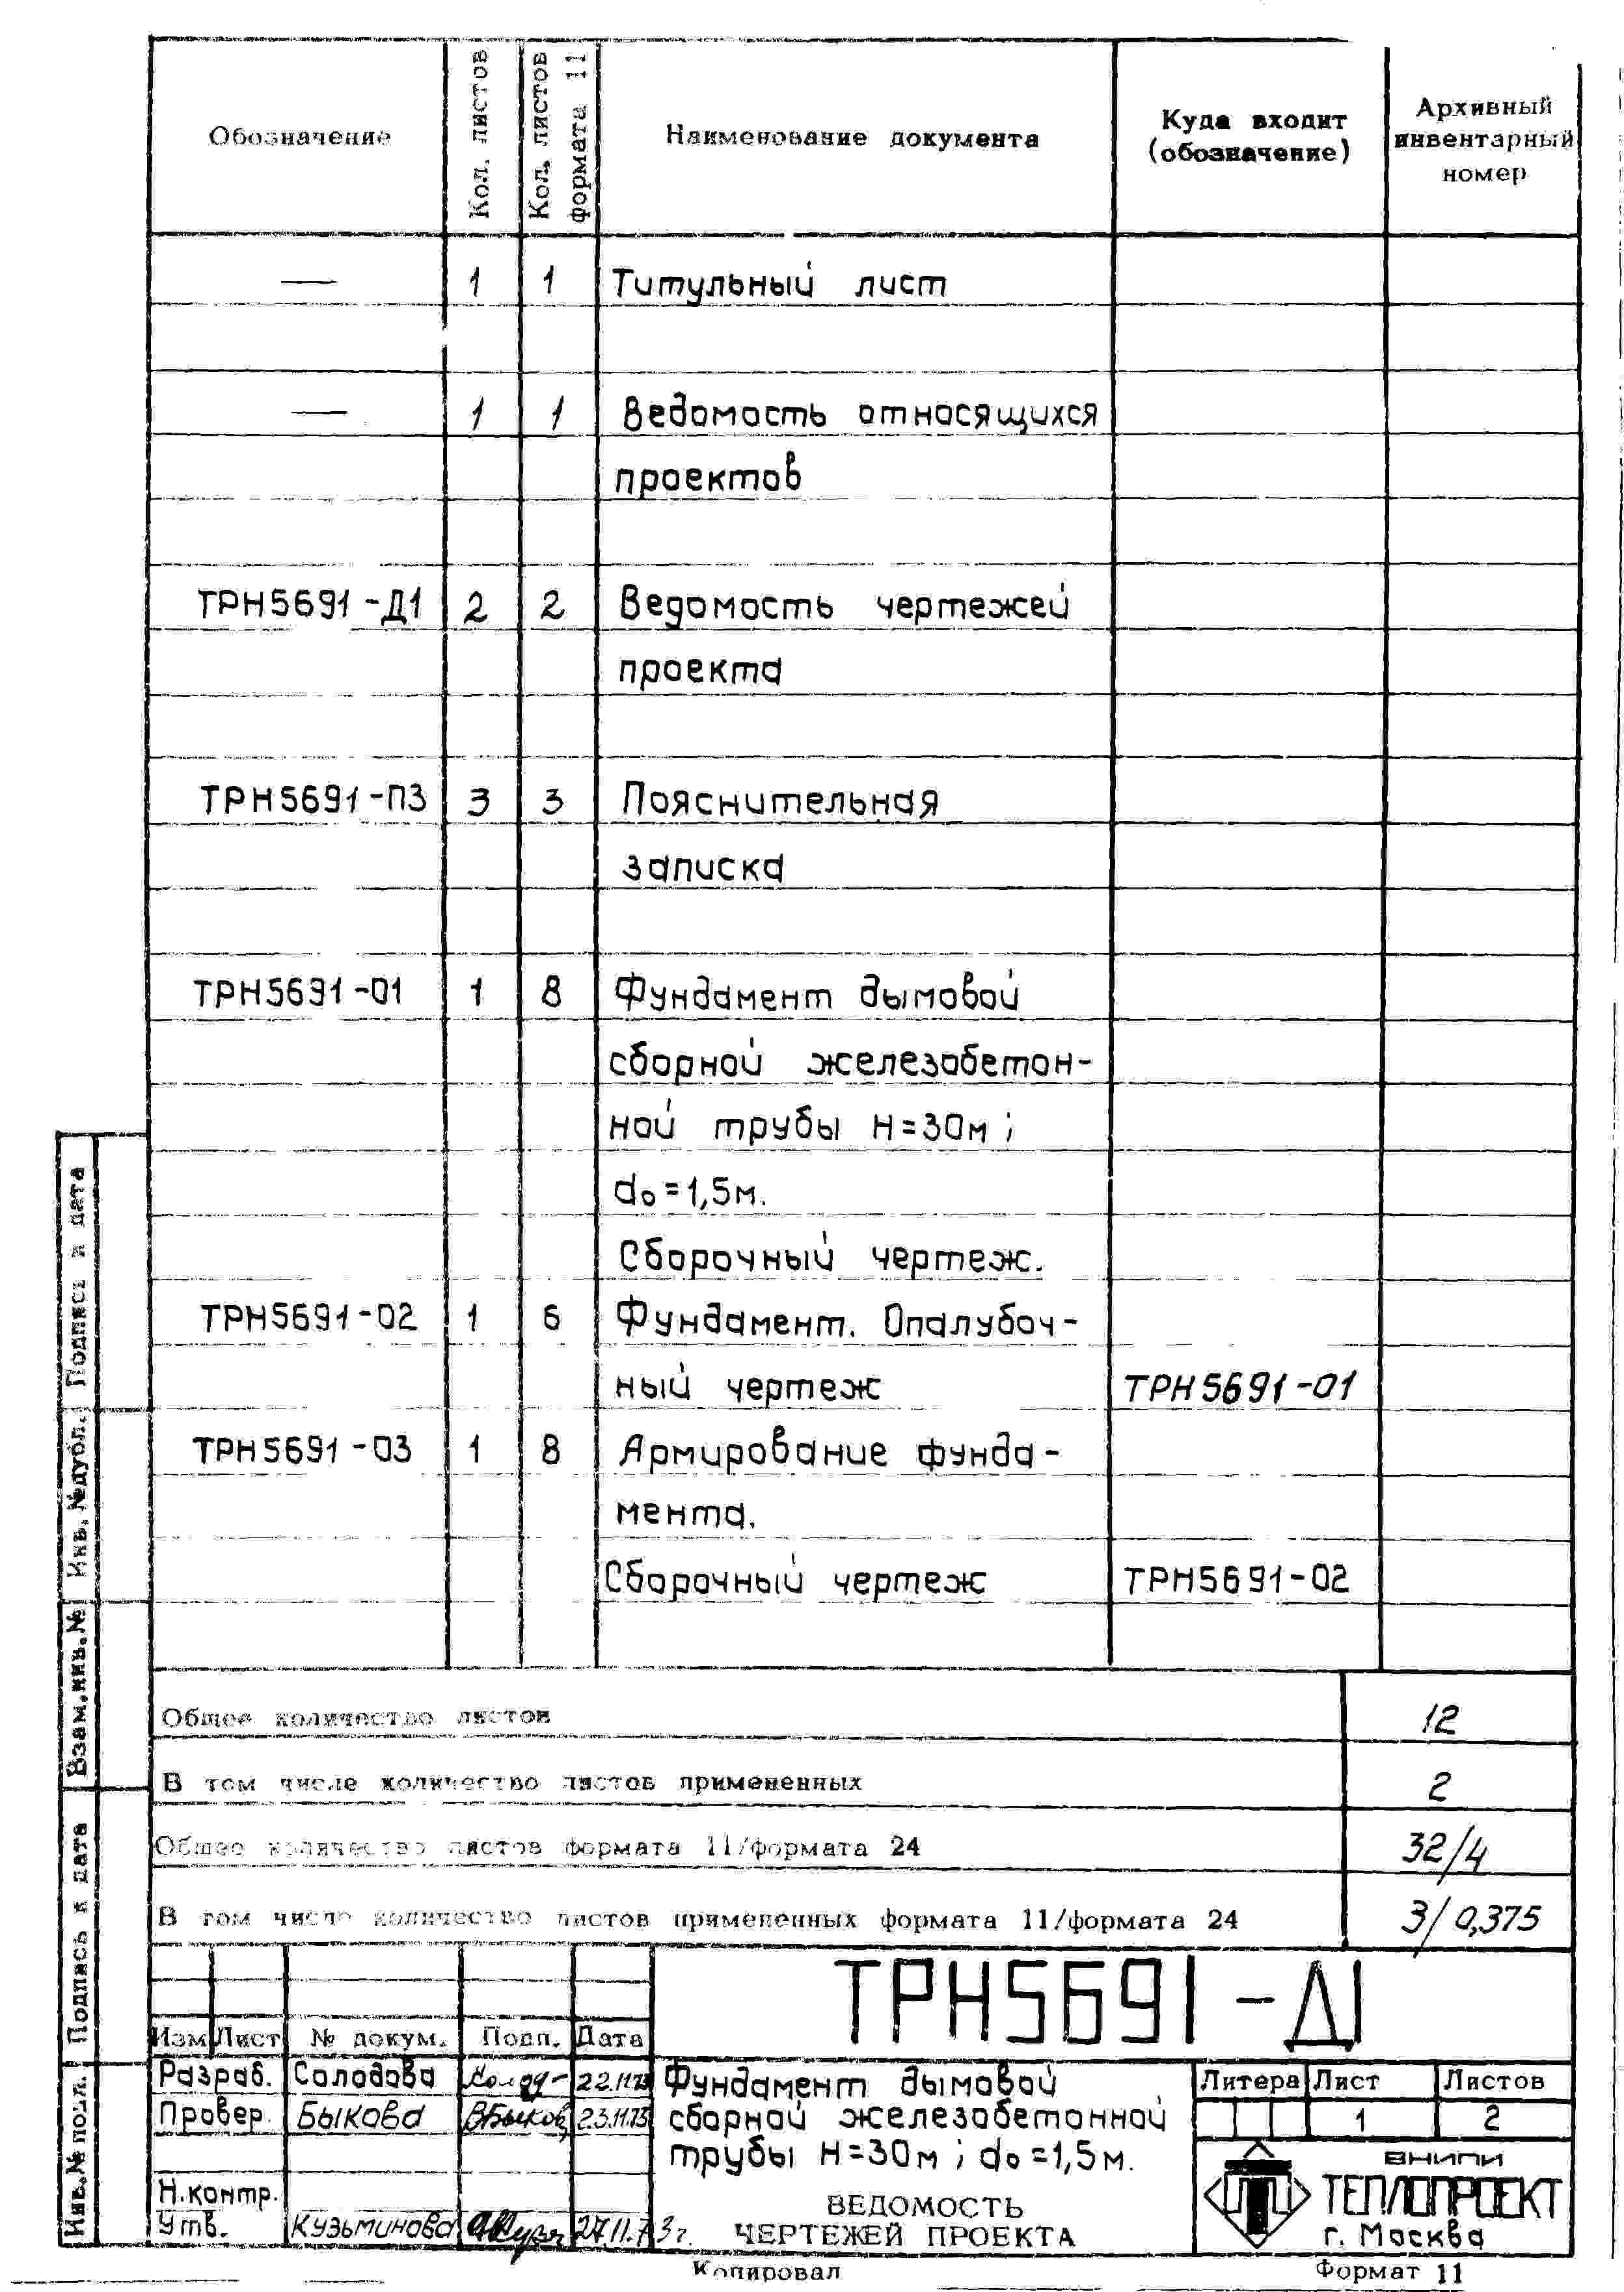 Обозначение
Кол. листов
Кол. листов
формата 11
Наименование документа
Куда входит
(обозначение)
Архивный
инвентарный
номер
— 1 1 Титульный лист
— 1 1 Ведомость относящихся
проектов
ТРН5691-Д1 2 2 Ведомость чертежей
проекта
ТРН5691-ПЗ 3 3 Пояснительная
записка
ТРН5691-01 1 8 Фундамент дымовой
сборной железобетон-
ной трубы Н=30м;
do=1,5м.
Сборочный чертеж.
ТРН5691-02 1 6 Фундамент. Опалубоч-
ный чертеж ТРН5691-01
ТРН5691-03 1 8 Армирование фунда-
мента.
Сборочный чертеж ТРН5691-02
Общее количество листов 12
В том числе количество листов примененных 2
Общее количество листов формата 11/формата 24 32/4
В том число количество листов примененных формата 11/формата 24 3/0,375
Подпись и дата
Инв.№дубл.
Взам.инв.№
Подпись и дата
Инв.№ подл.
ТРН5691-Д1
Изм Лист № докум. Подп. Дата
Разраб. Солодова 22.11.73
Провер. Быкова ВБыков 23.11.73
Н.контр.
Утв. Кузьминова 27.11.73г.
Фундамент дымовой
сборной железобетонной
трубы Н=30м; do=1,5м.
ВЕДОМОСТЬ
ЧЕРТЕЖЕЙ ПРОЕКТА
Литера Лист Листов
1 2
ВНИПИ
ТЕПЛОПРОЕКТ
г. Москва
Копировал
Формат 11